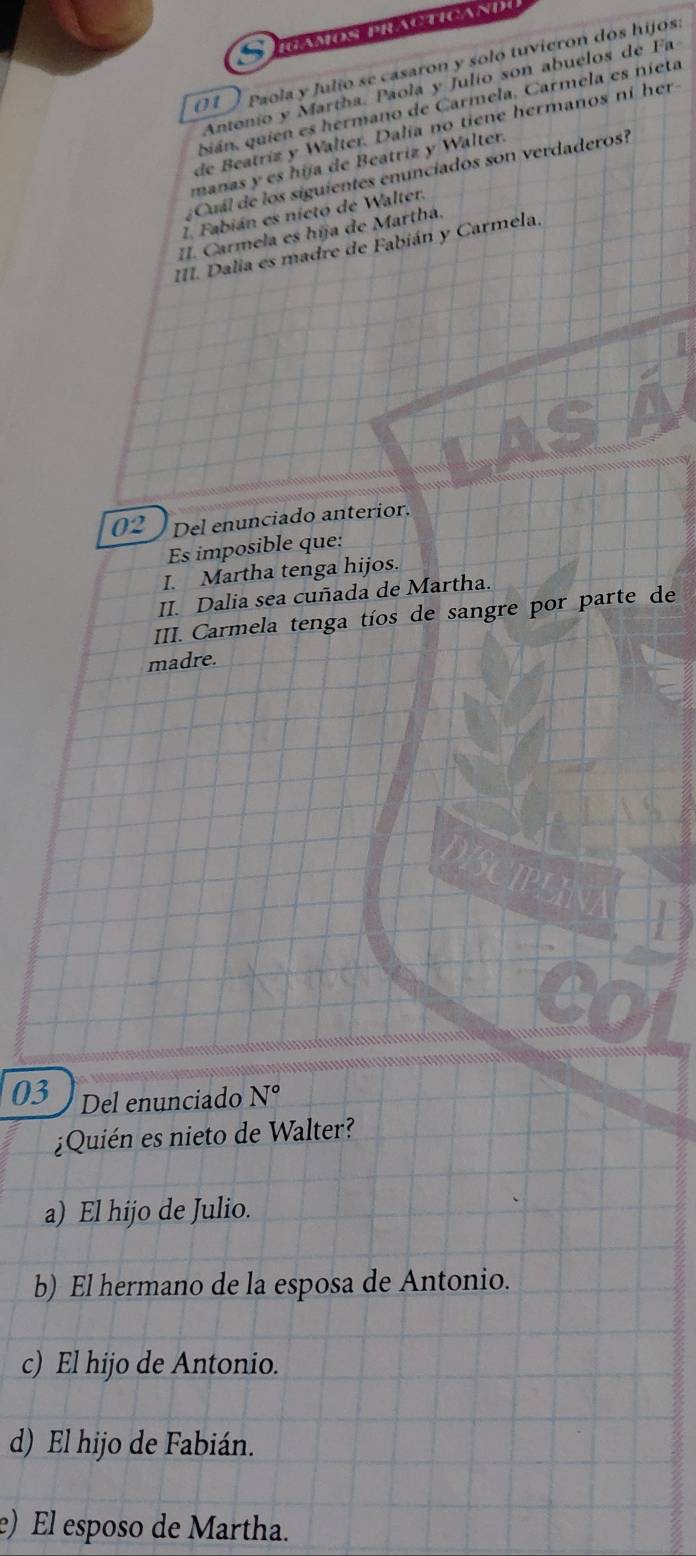 SIGAMOS PRACTICANDO
01 Paola y Julio se casaron y solo tuvieron dos hijos:
Antonio y Martha. Paola y Julio son abuelos de Fa-
bián, quien es hermano de Carmela. Carmela es nieta
de Beatriz y Walter. Dalia no tiene hermanos ni her-
manas y es hija de Beatriz y Walter.
¿Cuál de los siguientes enunciados son verdaderos?
I. Fabián es nieto de Walter.
II. Carmela es hija de Martha.
III. Dalia es madre de Fabián y Carmela.
LAS Á
02 Del enunciado anterior.
Es imposible que:
I. Martha tenga hijos.
II. Dalia sea cuñada de Martha.
III. Carmela tenga tíos de sangre por parte de
madre.
DISCIPLINA
COL
03 Del enunciado N°
¿Quién es nieto de Walter?
a) El hijo de Julio.
b) El hermano de la esposa de Antonio.
c) El hijo de Antonio.
d) El hijo de Fabián.
e) El esposo de Martha.